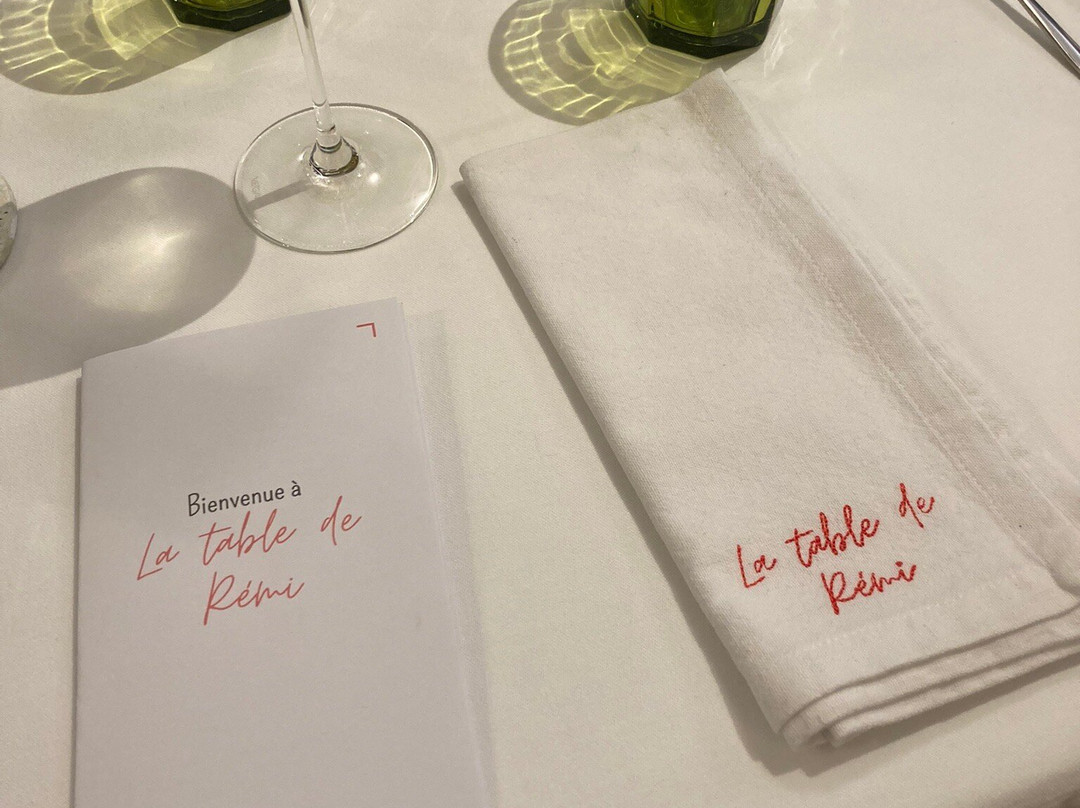 Bienvenue à
La table de
Rémi
La table de
Rémi